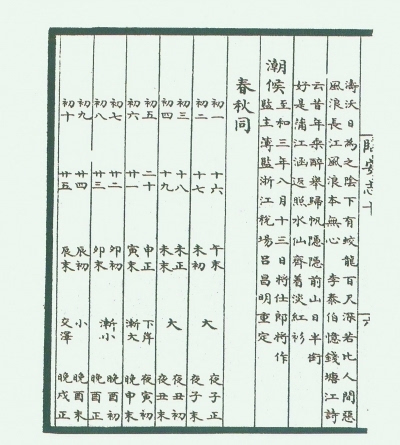 臨安志十
濤沃日為之陰下有蛟龍百尺深若比人間惡
風浪長江風浪本無心 李泰伯憶錢塘江詩
云昔年乘醉舉歸帆隱隱前山日半銜
好是蒲江涵返照水仙齊着淡紅衫
潮候 至和三年八月十三日將仕郎將作
監主薄監浙江稅場呂昌明重定
春秋同
初一 十六 午末 大 夜子正
初二 十七 未初 夜子末
初三 十八 未正 大 夜丑初
初四 十九 未末 夜丑末
初五 二十 申正 下岸 夜寅初
初六 廿一 寅末 漸大 晚申末
初七 廿二 卯初 漸小 晚酉初
初八 廿三 卯末 晚酉正
初九 廿四 辰初 小 晚酉末
初十 廿五 辰末 交澤 晚戌正